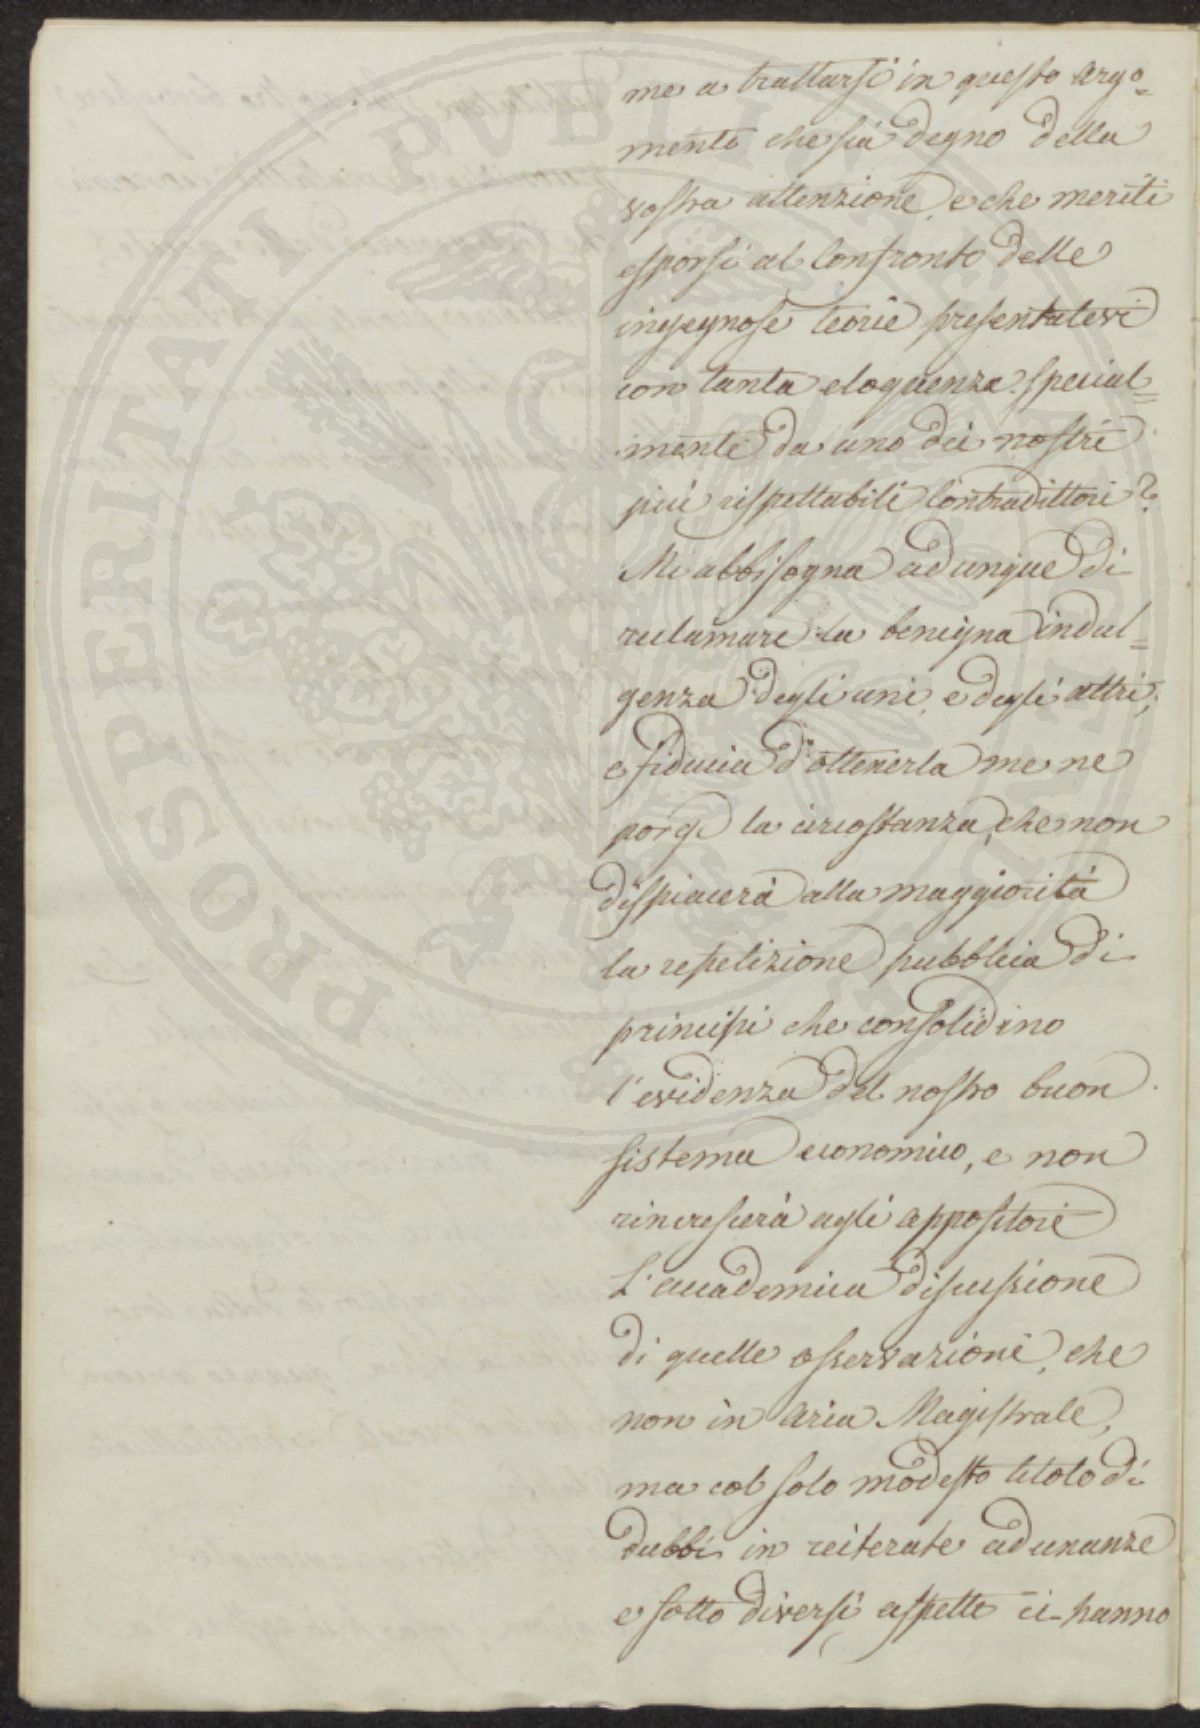 me a trattarsi in questo argo=
mento che sia degno della
vostra attenzione, e che meriti
esporsi al confronto delle
ingegnose teorie presentatevi
con tanta eloquenza special=
mente da uno dei nostri
più rispettabili Contradittori?
Mi abbisogna adunque di
reclamare la benigna indul=
genza degli uni, e degli altri;
e fiducia d'ottenerla me ne
porge la circostanza, che non
dispiacerà alla maggiorità
la repetizione pubblica di
principi che consolidino
l'evidenza del nostro buon
sistema economico, e non
rincrescerà agli appositori
L'accademica discussione
di quelle osservazioni, che
non in aria Magistrale,
ma col solo modesto titolo di
dubbi in reiterate adunanze
e sotto diversi aspetti ci hanno
PROSPERITATI PUBLICAE